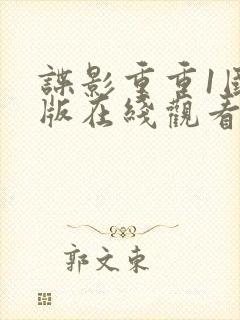 諜影重重1
版在綫觀看
郭文東